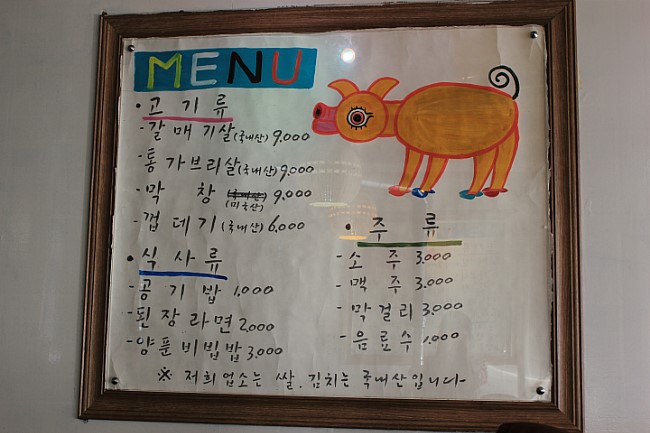 MENU
• 고기류
- 갈매기살(국내산) 9,000
- 통가브리살(국내산) 9,000
- 막창 (미국산) 9,000
- 껍데기(국내산) 6,000
• 식사류
- 공기밥 1,000
- 된장라면 2,000
- 양푼비빔밥 3,000
• 주류
- 소주 3,000
- 맥주 3,000
- 막걸리 3,000
- 음료수 1,000
※ 저희업소는 쌀, 김치는 국내산입니다-